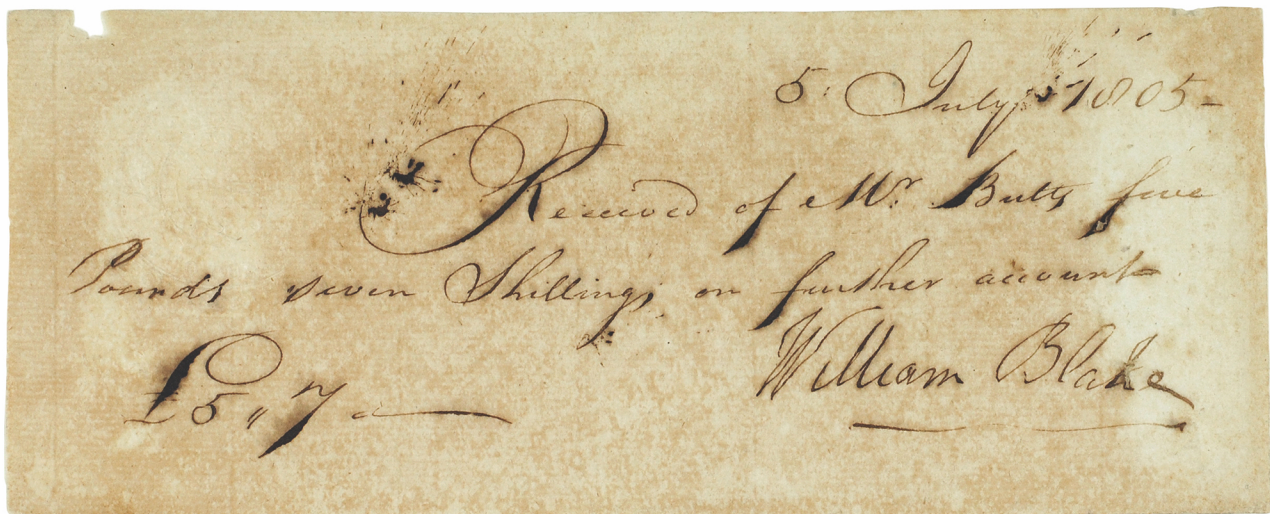 5 July 1805 -
Received of Mr. Butts five
Pounds seven Shillings on further account
William Blake
£5 " 7 -